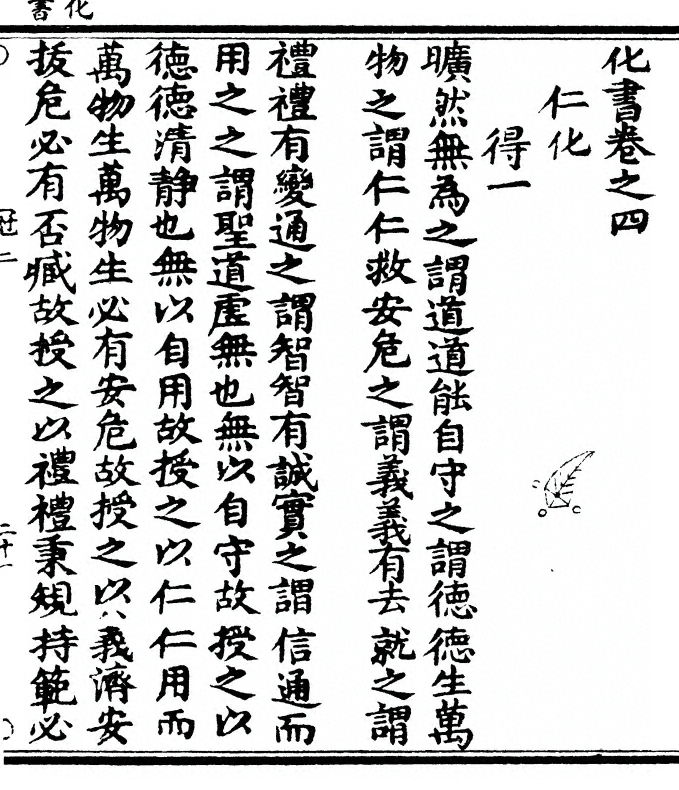 化書
化書卷之四
仁化
得一
曠然無為之謂道道能自守之謂德德生萬
物之謂仁仁救安危之謂義義有去就之謂
禮禮有變通之謂智智有誠實之謂信通而
用之之謂聖道虛無也無以自守故授之以
德德清靜也無以自用故授之以仁仁用而
萬物生萬物生必有安危故授之以義義濟安
拔危必有否臧故授之以禮禮秉規持範必
二十一